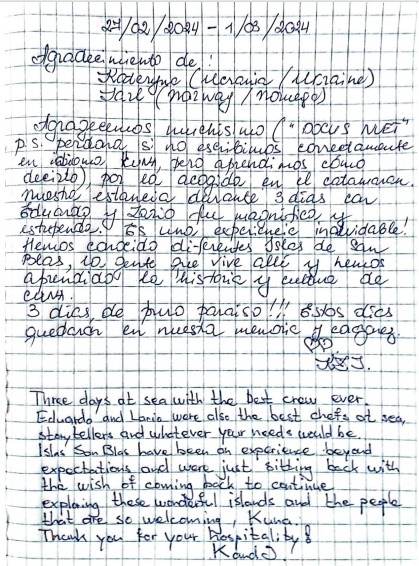 27/02/2024 - 1/03/2024
Agradecimiento de:
Kateryna (Ucrania / Ukraine)
Tarl (Norway / Noruega)
Agragecemos muchisimo ("DOCUS NUET"
p.s. perdona, si no escribimos correctamente
en idioma kuna, pero aprendimos cómo
decirlo), por la acogida en el catamaran.
Nuestra estancia durante 3 dias con
Eduardo y Lario fue magnifica y
estupenda. Es una experiencia inolvidable!
Hemos conocido diferentes Islas de San
Blas, la gente que vive allí y hemos
aprendido la historia y cultura de
kuna.
3 dias de puro paraiso!!! Estos dias
quedaran en nuestra memoria y
K&J.
Three days at sea with the best crew ever.
Eduardo and Lario were also the best chefs at sea,
storytellers and whatever your needs would be.
Islas San Blas have been an experience beyond
expectations and were just sitting back with
the wish of coming back to continue
exploring these wonderful islands and the people
that are so welcoming, Kuna.
Thank you for your hospitality!
K and J.